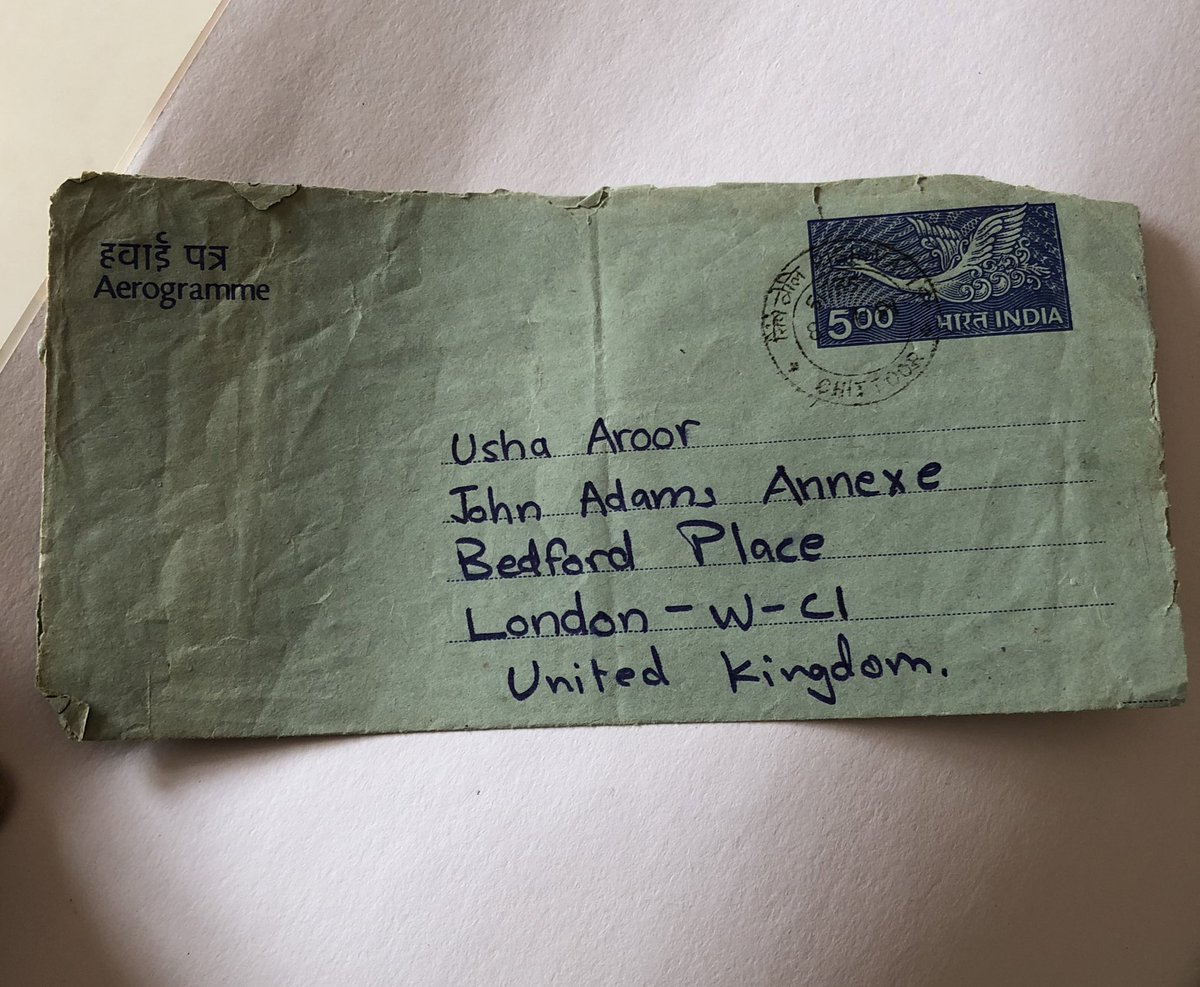 हवाई पत्र
Aerogramme
5.00 भारत INDIA
CHITTOOR
Usha Aroor
John Adams Annexe
Bedford Place
London - W-C1
United Kingdom.